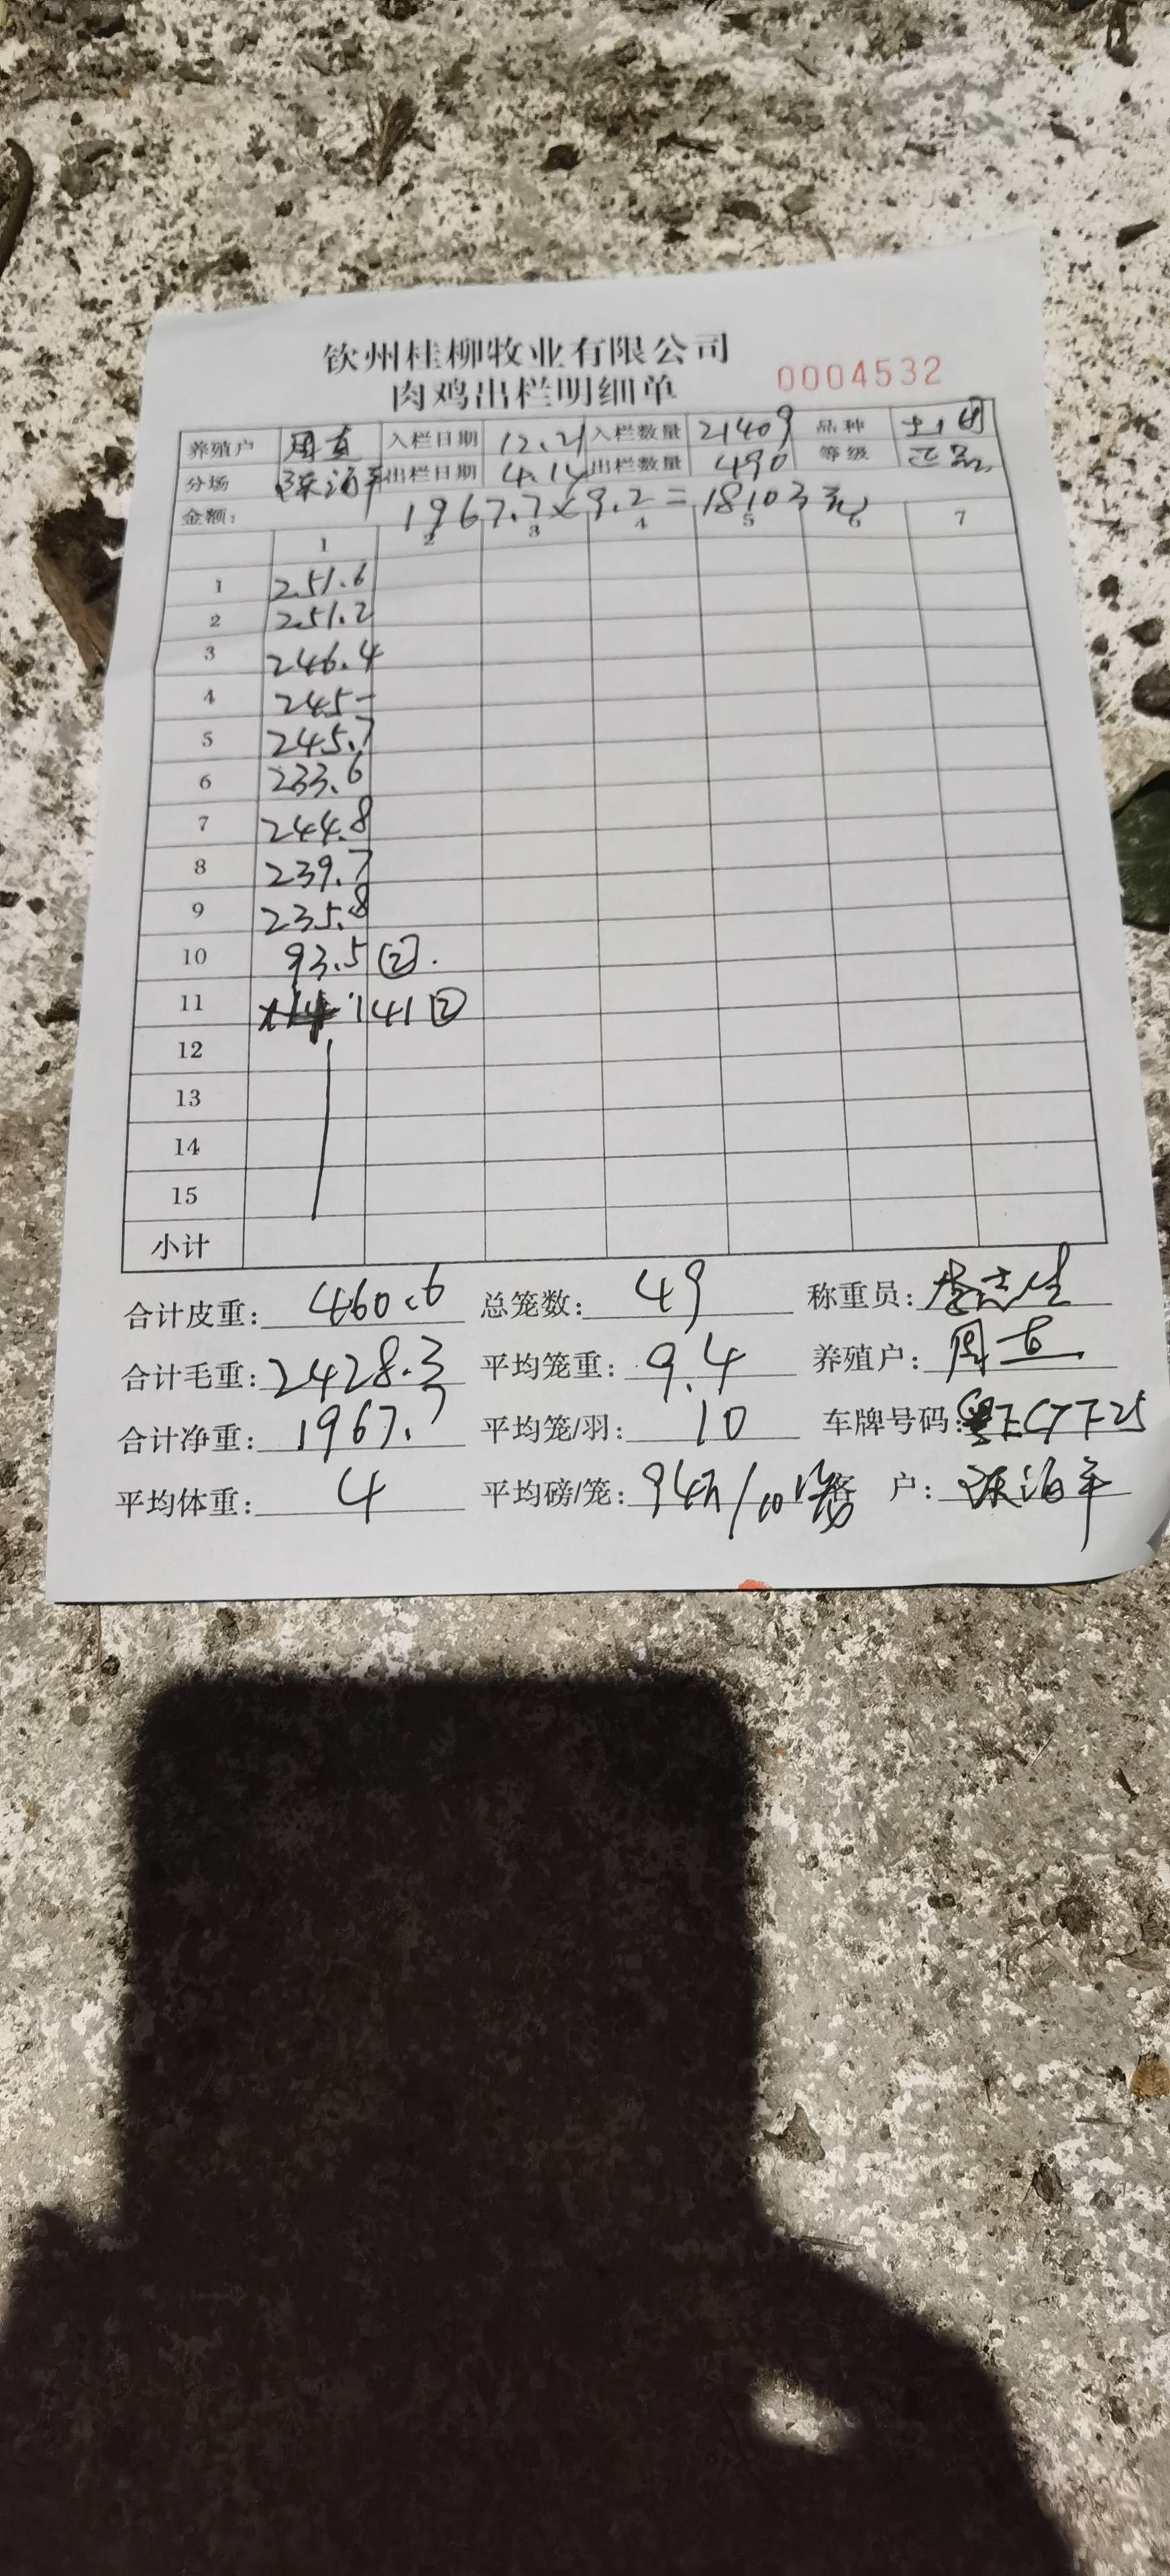 钦州桂柳牧业有限公司
肉鸡出栏明细单 0004532
养殖户 周直 入栏日期 12.21 入栏数量 21409 品种 土1
分场 陈泊平 出栏日期 4.14 出栏数量 490 等级 正品
金额: 1967.7×9.2=18103元
1 2 3 4 5 6 7
1 251.6
2 251.2
3 246.4
4 245-
5 245.7
6 233.6
7 244.8
8 239.7
9 235.8
10 93.5 ②.
11 141 ②
12
13
14
15
小计
合计皮重: 460.6 总笼数: 49 称重员: 李志生
合计毛重: 2428.3 平均笼重: 9.4 养殖户: 周直
合计净重: 1967.7 平均笼/羽: 10 车牌号码:
平均体重: 4 平均磅/笼: 户: 陈泊平